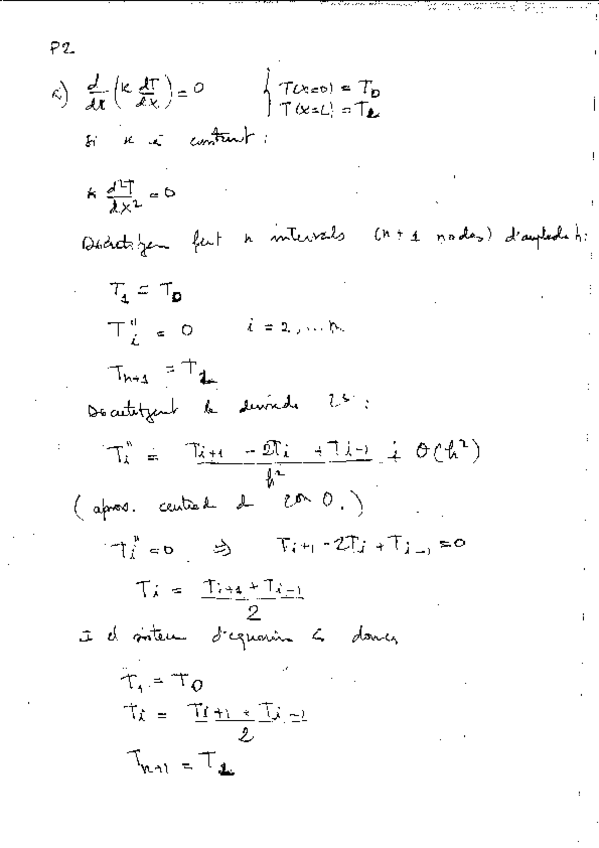 P2
a) d/dx (K dT/dx) = 0 { T(x=0) = T0
T(x=L) = TL
Si K é constant:
K d²T/dx² = 0
Discretitzem fent n intervals (n+1 nodes) d'amplada h:
T1 = T0
Ti'' = 0 i = 2, ... n
Tn+1 = TL
Discretitzant la derivada 2a:
Ti'' = (Ti+1 - 2Ti + Ti-1)/h² i O(h²)
(aprox. centrada d 2on O.)
Ti'' = 0 ⇒ Ti+1 - 2Ti + Ti-1 = 0
Ti = (Ti+1 + Ti-1)/2
I el sistema d'equacions és doncs
T1 = T0
Ti = (Ti+1 + Ti-1)/2
Tn+1 = TL